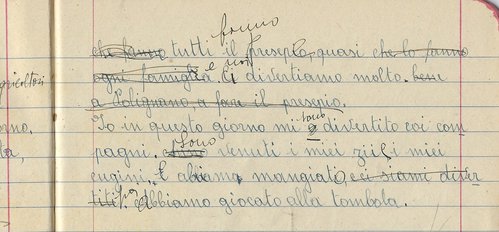 fanno
che fanno tutti il presepio, quasi che lo fanno
ogni famiglia e noi ci divertiamo molto. bene
a Polignano a fare il presepio.
Io in questo giorno mi sono divertito coi com
pagni. Sono venuti i miei zii e i miei
cugini. E abbiamo mangiato, e ci siami diver
titi, Abbiamo giocato alla tombola.
gricoltori
rno.
ta,